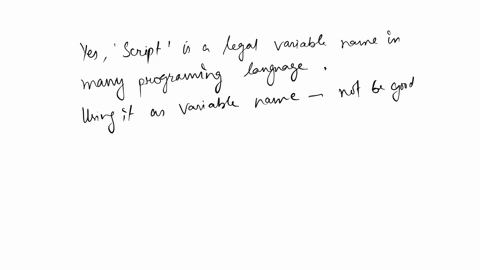 Yes, 'Script' is a legal variable name in
many programing language.
Using it as variable name — not be good